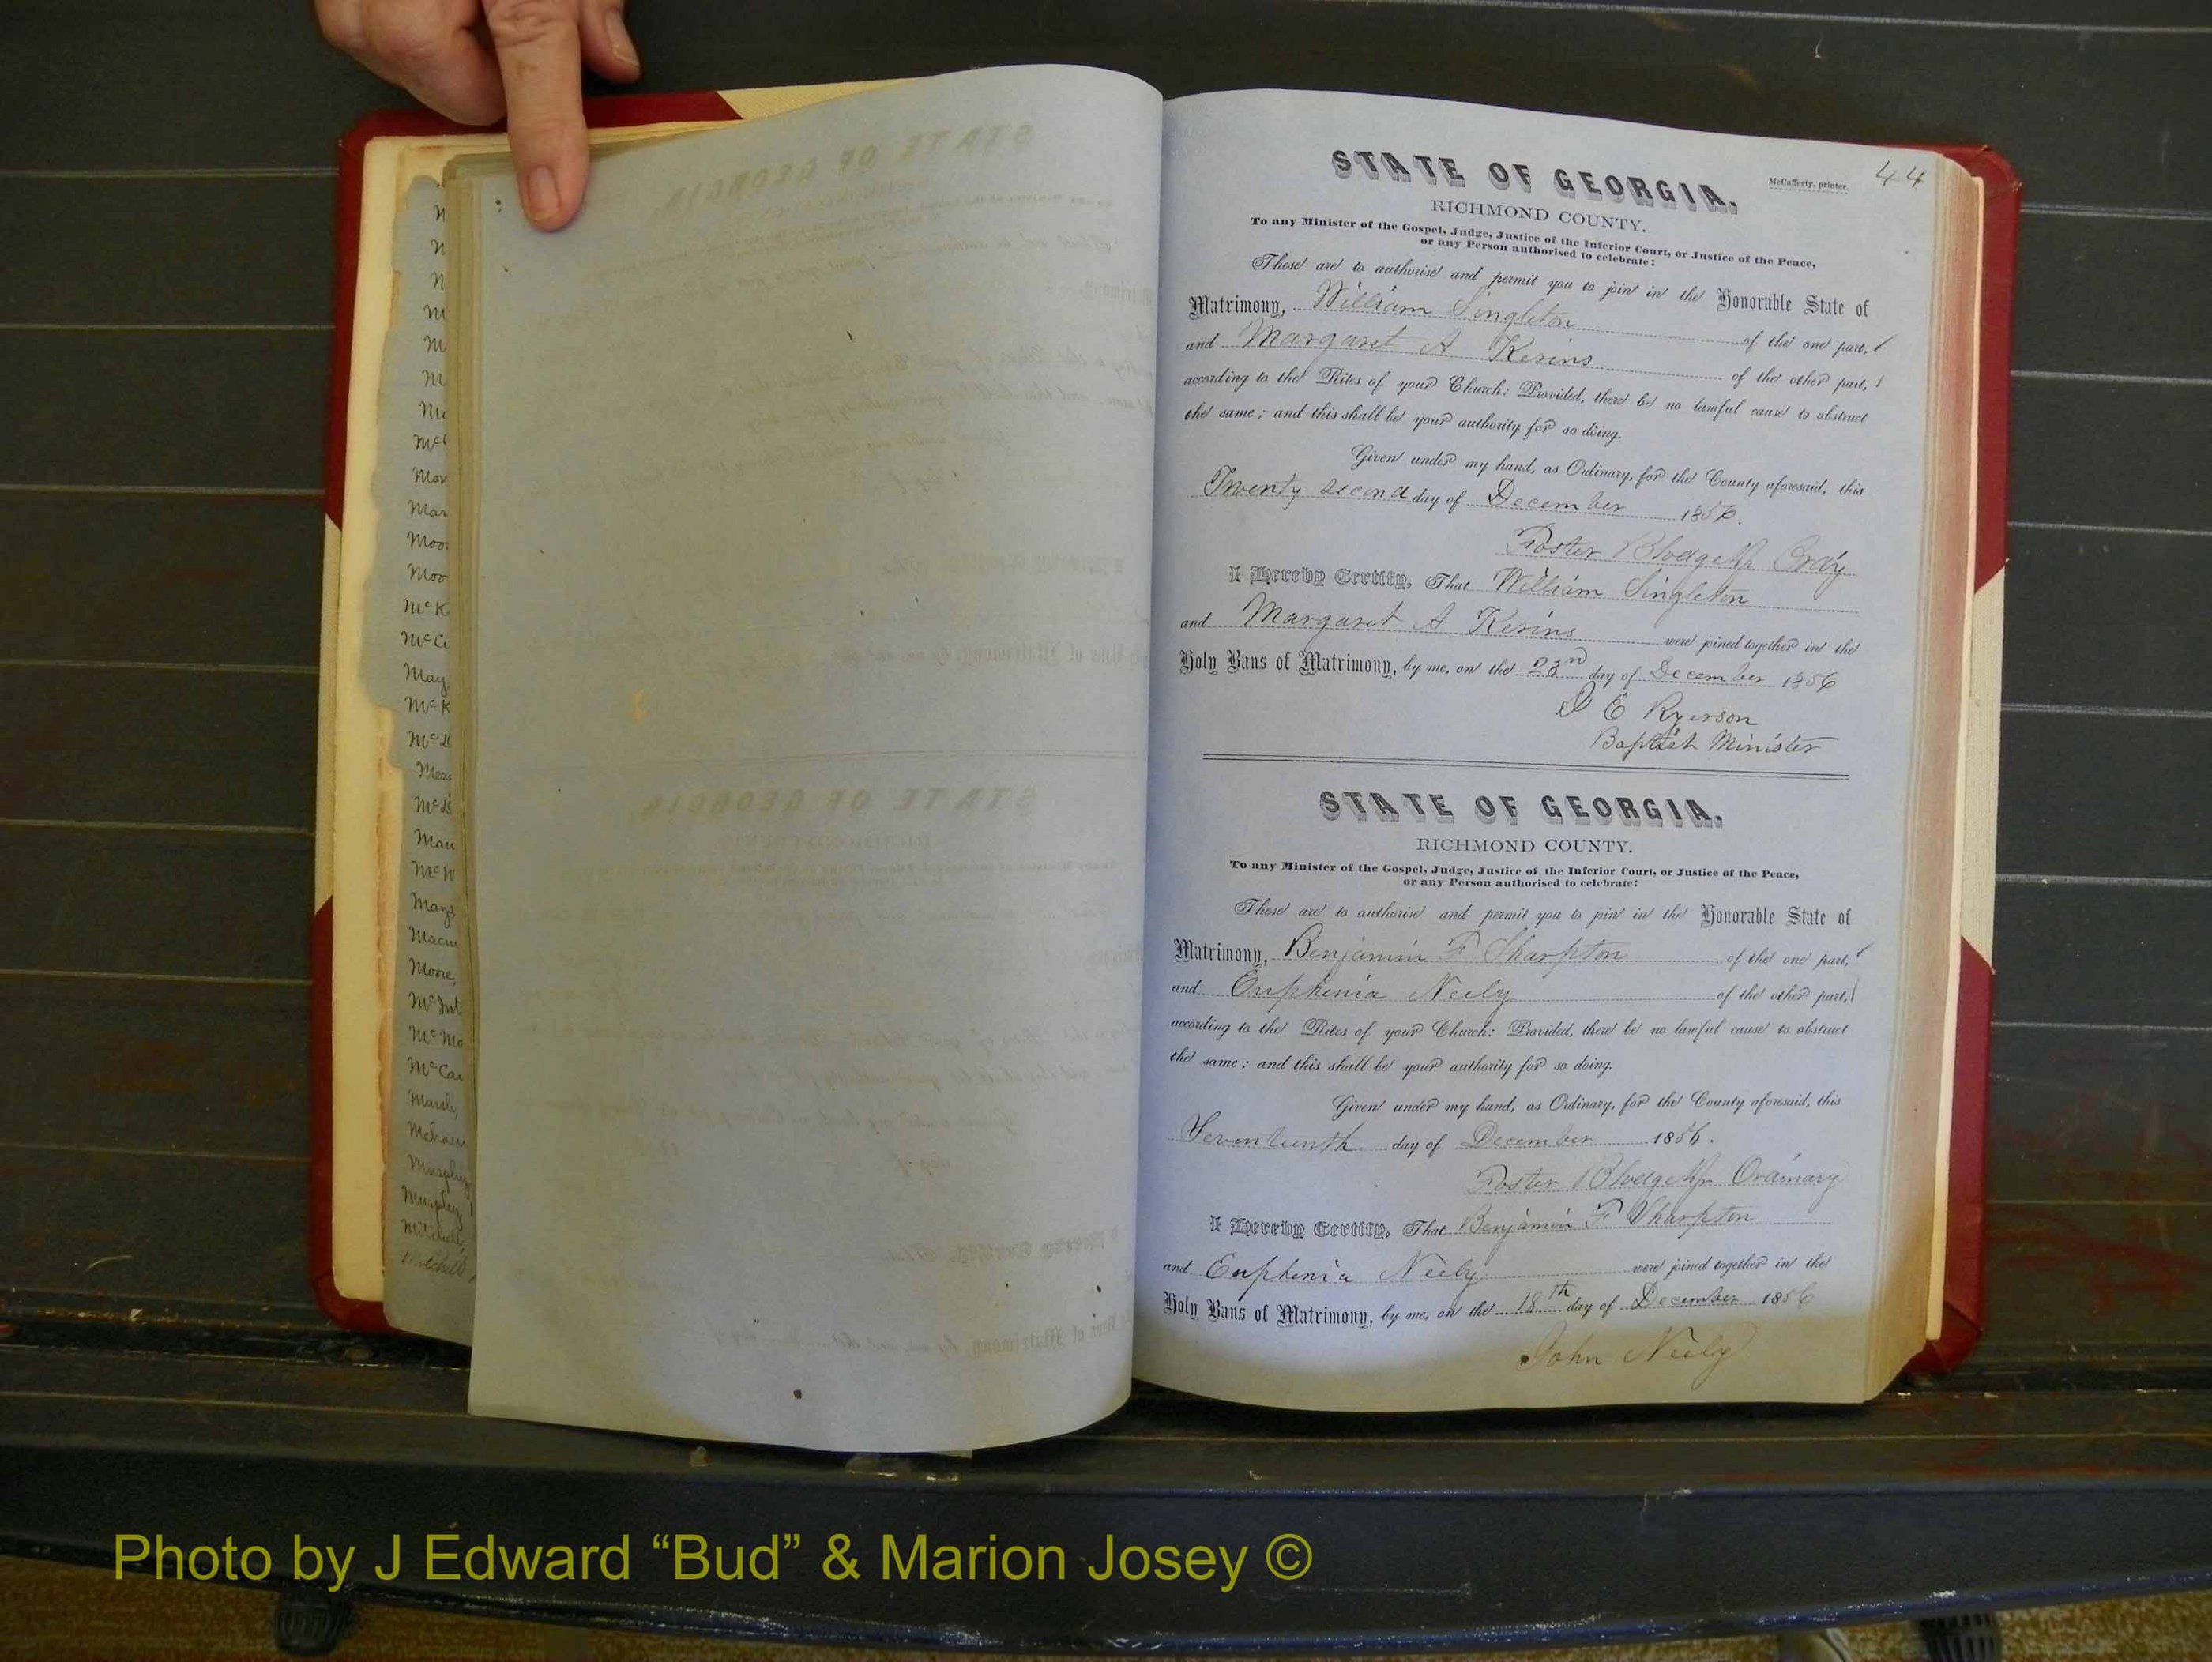 44
McCafferty, printer.
STATE OF GEORGIA.
RICHMOND COUNTY.
To any Minister of the Gospel, Judge, Justice of the Inferior Court, or Justice of the Peace,
or any Person authorised to celebrate:
These are to authorise and permit you to join in the Honorable State of
Matrimony, William Singleton of the one part,
and Margaret A Kerins of the other part,
according to the Rites of your Church: Provided, there be no lawful cause to obstruct
the same; and this shall be your authority for so doing.
Given under my hand, as Ordinary, for the County aforesaid, this
Twenty second day of December 1856.
Foster Blodget Jr Ordy
I Hereby Certify, That William Singleton
and Margaret A Kerins were joined together in the
Holy Bans of Matrimony, by me, on the 23rd day of December 1856
E Ryerson
Baptist Minister
STATE OF GEORGIA.
RICHMOND COUNTY.
To any Minister of the Gospel, Judge, Justice of the Inferior Court, or Justice of the Peace,
or any Person authorised to celebrate:
These are to authorise and permit you to join in the Honorable State of
Matrimony, Benjamin F Sharpton of the one part,
and Euphenia Neely of the other part,
according to the Rites of your Church: Provided, there be no lawful cause to obstruct
the same; and this shall be your authority for so doing.
Given under my hand, as Ordinary, for the County aforesaid, this
Seventeenth day of December 1856.
Foster Blodget Jr Ordinary
I Hereby Certify, That Benjamin F Sharpton
and Euphenia Neely were joined together in the
Holy Bans of Matrimony, by me, on the 18th day of December 1856
John Neely
Photo by J Edward “Bud” & Marion Josey ©